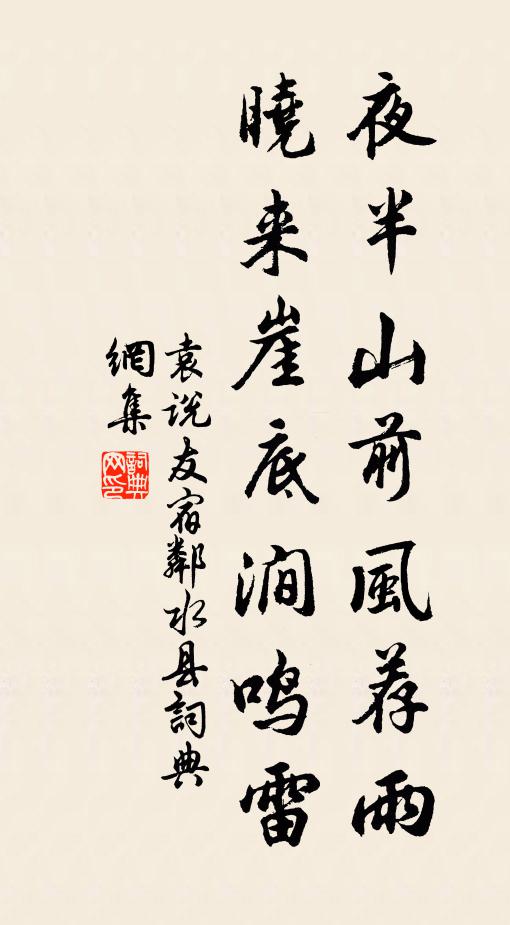 夜半山前風荐雨
曉来崖底澗鸣雷
袁说友宿鄰水县詞典
網集
詞典
网印